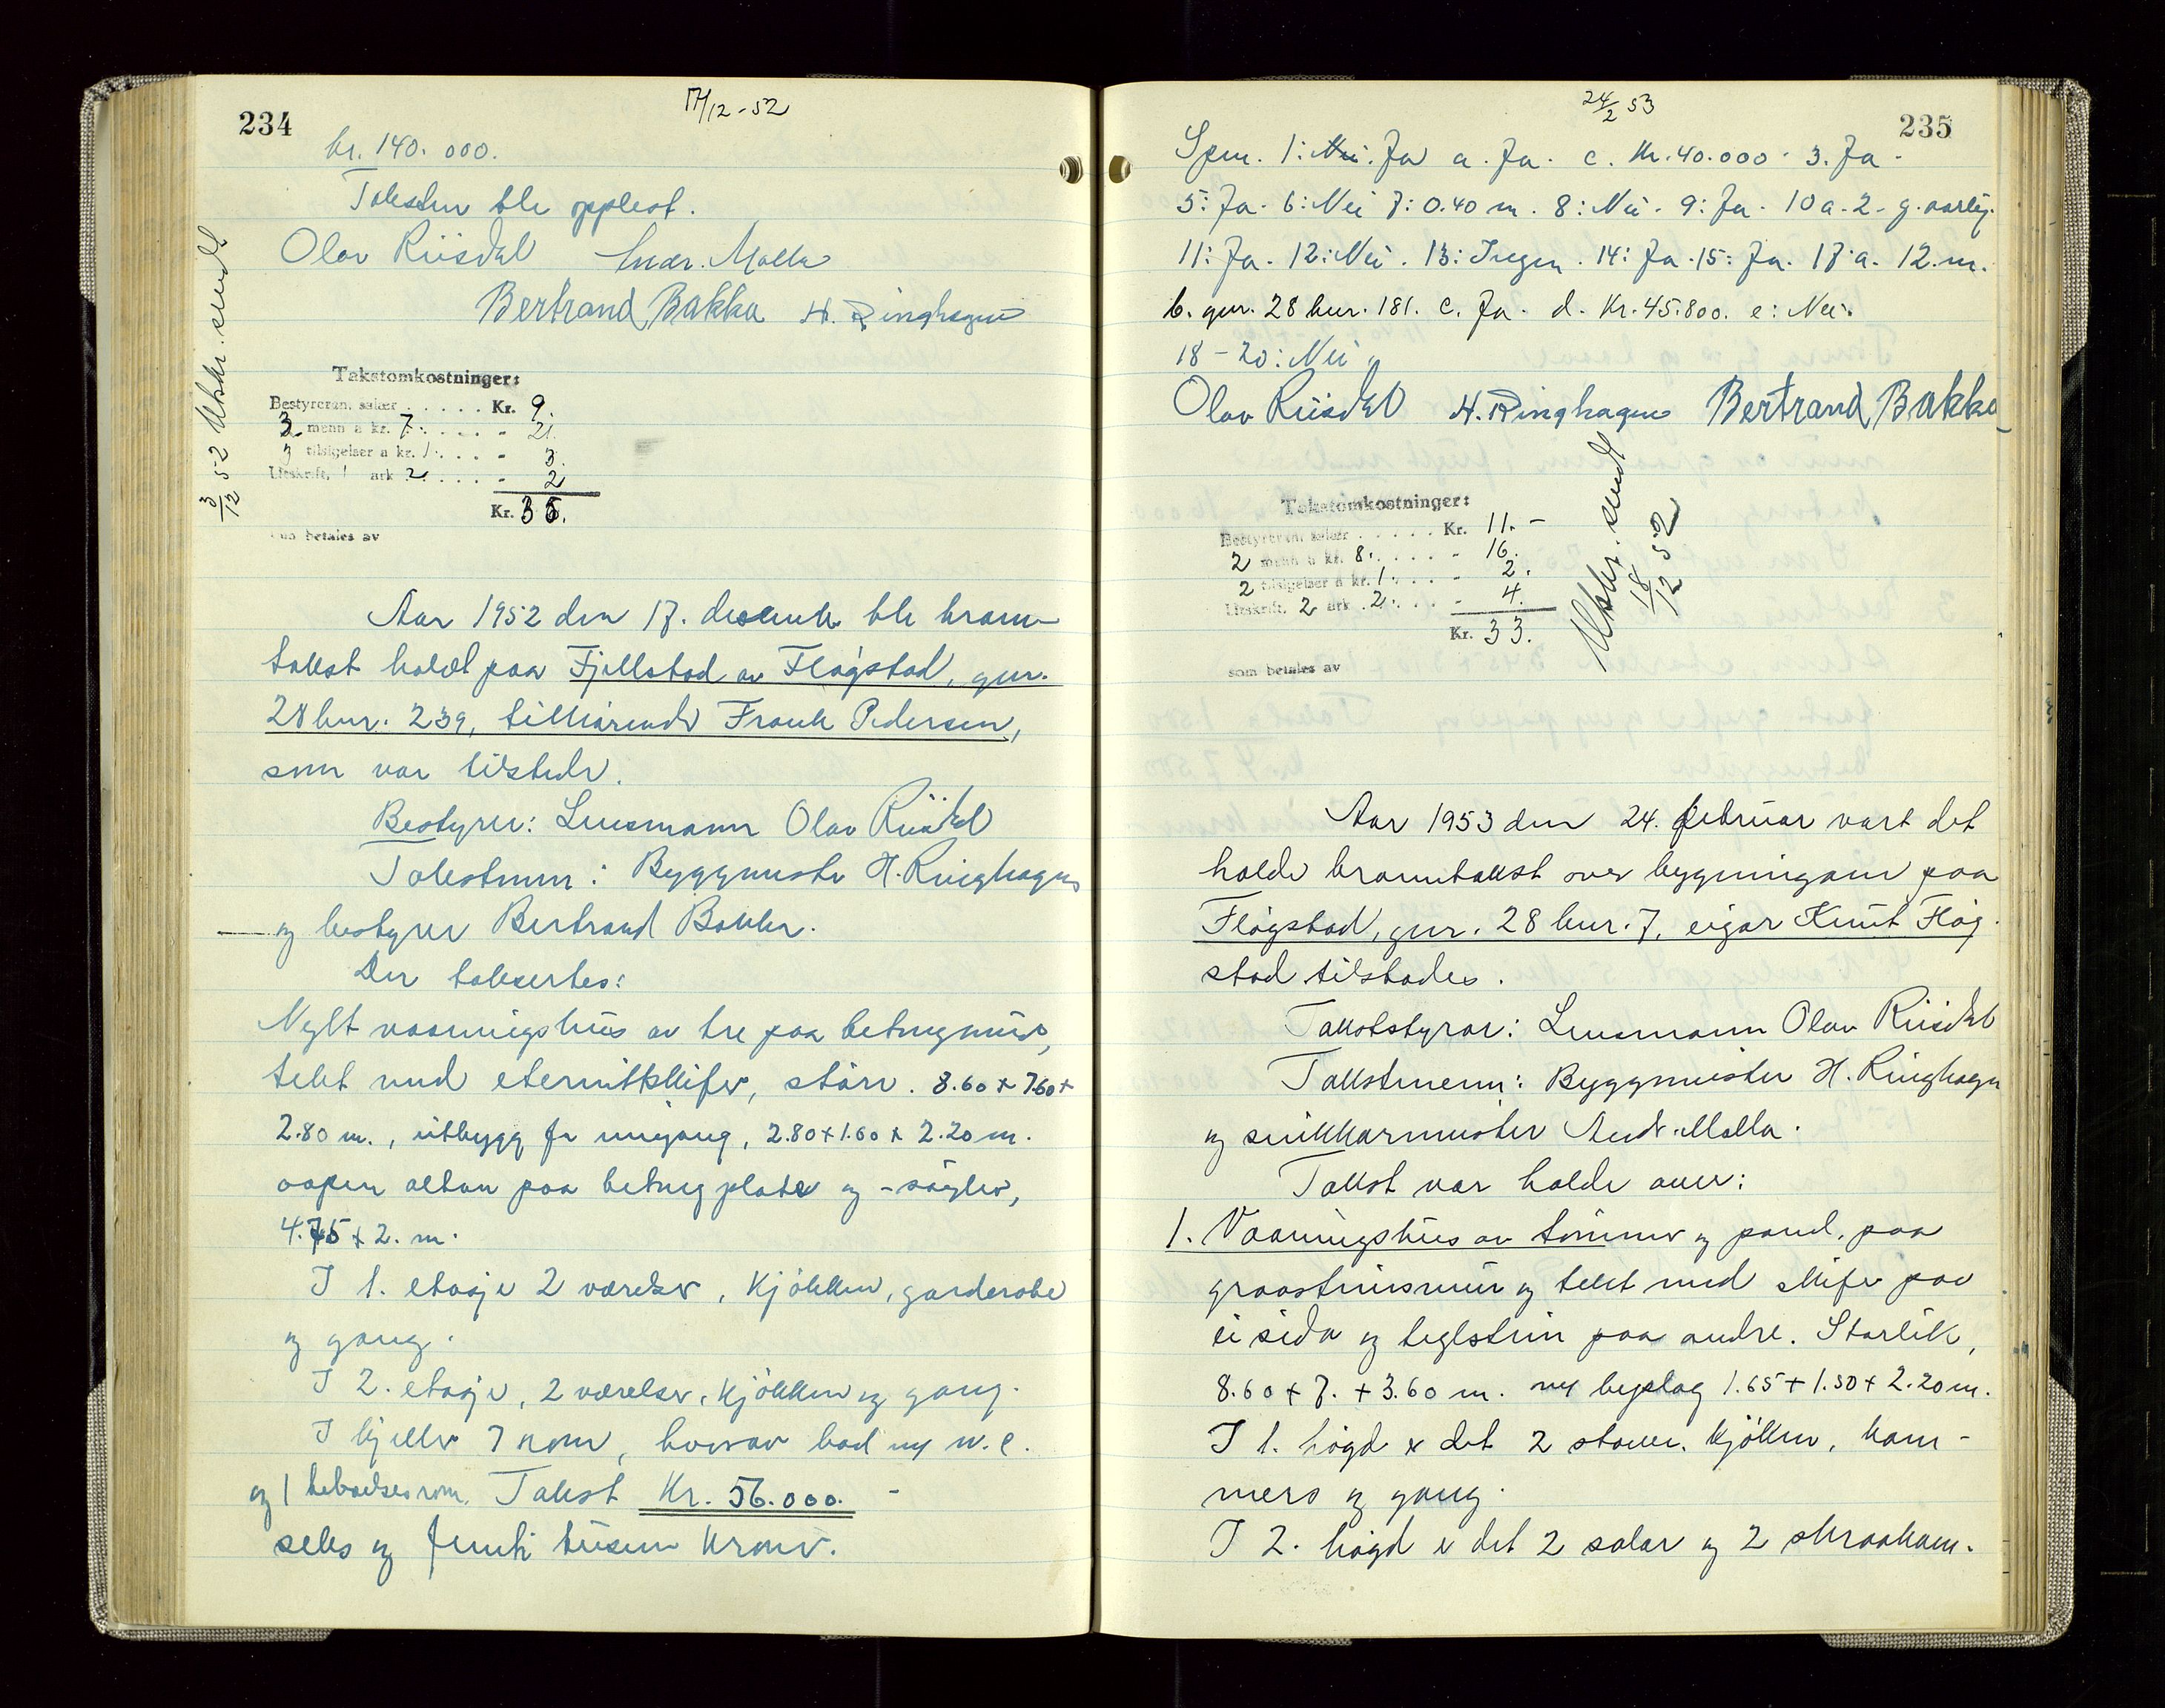 234
17/12-52
kr. 140.000.
Taksten ble opplest.
Olav Riisdal Andr. Malla
Bertrand Bakka H. Ringhagen
3/12 52 Utskr. sendt
Takstomkostninger:
Bestyreren, salær ..... Kr. 9.
3 menn a kr. 7. .... - 21.
3 tilsigelser a kr. 1. .... - 3.
Utskrift, 1 ark 2. .... - 2
Kr. 35.
som betales av
Aar 1952 den 17. desember ble brann-
takst holdt paa Fjellstad av Flógstad, gnr.
28 bnr. 239, tilhörende Frank Pedersen,
som var tilstede.
Bestyrer: Lensmann Olav Riisdal
Takstmenn: Byggmester H. Ringhagen
og bestyrer Bertrand Bakka.
Der taksertes:
Nytt vaaningshus av tre paa betongmur,
tekt med eternittskifer, störr. 8.60 + 7.60 +
2.80 m., utbygg for inngang, 2.80 + 1.60 + 2.20 m.
aapen altan paa betong plate og -söyler,
4.75 + 2. m.
I 1. etasje 2 værelser, kjökken, garderobe
og gang.
I 2. etasje, 2 værelser, kjökken og gang.
I kjeller 7 rom, hvorav bad og w.c.
og 1 beboelsesrom. Takst Kr. 56.000. -
seks og femti tusen kroner.
235
24/2 53
Spm. 1: Nei. Ja a. Ja. c. Kr. 40.000. 3. Ja.
5: Ja. 6: Nei 7: 0.40 m. 8: Nei. 9: Ja. 10 a. 2. g. aarlig.
11: Ja. 12: Nei. 13: Ingen. 14: Ja. 15: Ja. 17: a. 12. m.
b. gnr. 28 bnr. 181. c. Ja. d. Kr. 45.800. e: Nei.
18 - 20: Nei
Olav Riisdal H. Ringhagen Bertrand Bakka
Takstomkostninger:
Bestyreren, salær ..... Kr. 11. -
2 menn a kr. 8. .... - 16.
2 tilsigelser a kr. 1. .... - 2.
Utskrift, 2 ark 2. .... - 4.
Kr. 33.
som betales av
Utskr. sendt
18/12 52
Aar 1953 den 24. februar vart det
halde branntakst over bygningane paa
Flógstad, gnr. 28 bnr. 7, eigar Knut Flóg-
stad tilstades.
Takststyrar: Lensmann Olav Riisdal
Takstmenn: Byggmeister H. Ringhagen
og snikkarmeister Andr. Malla.
Takst var halde over:
1. Vaaningshus av tömmer og panel, paa
graasteinsmur og tekt med skifer paa
ei sida og teglstein paa andre. Storleik,
8.60 + 7. + 3.60 m. med bislag 1.65 + 1.50 + 2.20 m.
I 1. högd er det 2 stover, kjökken, kam-
mers og gang.
I 2. högd er det 2 salar og 2 skraakam-